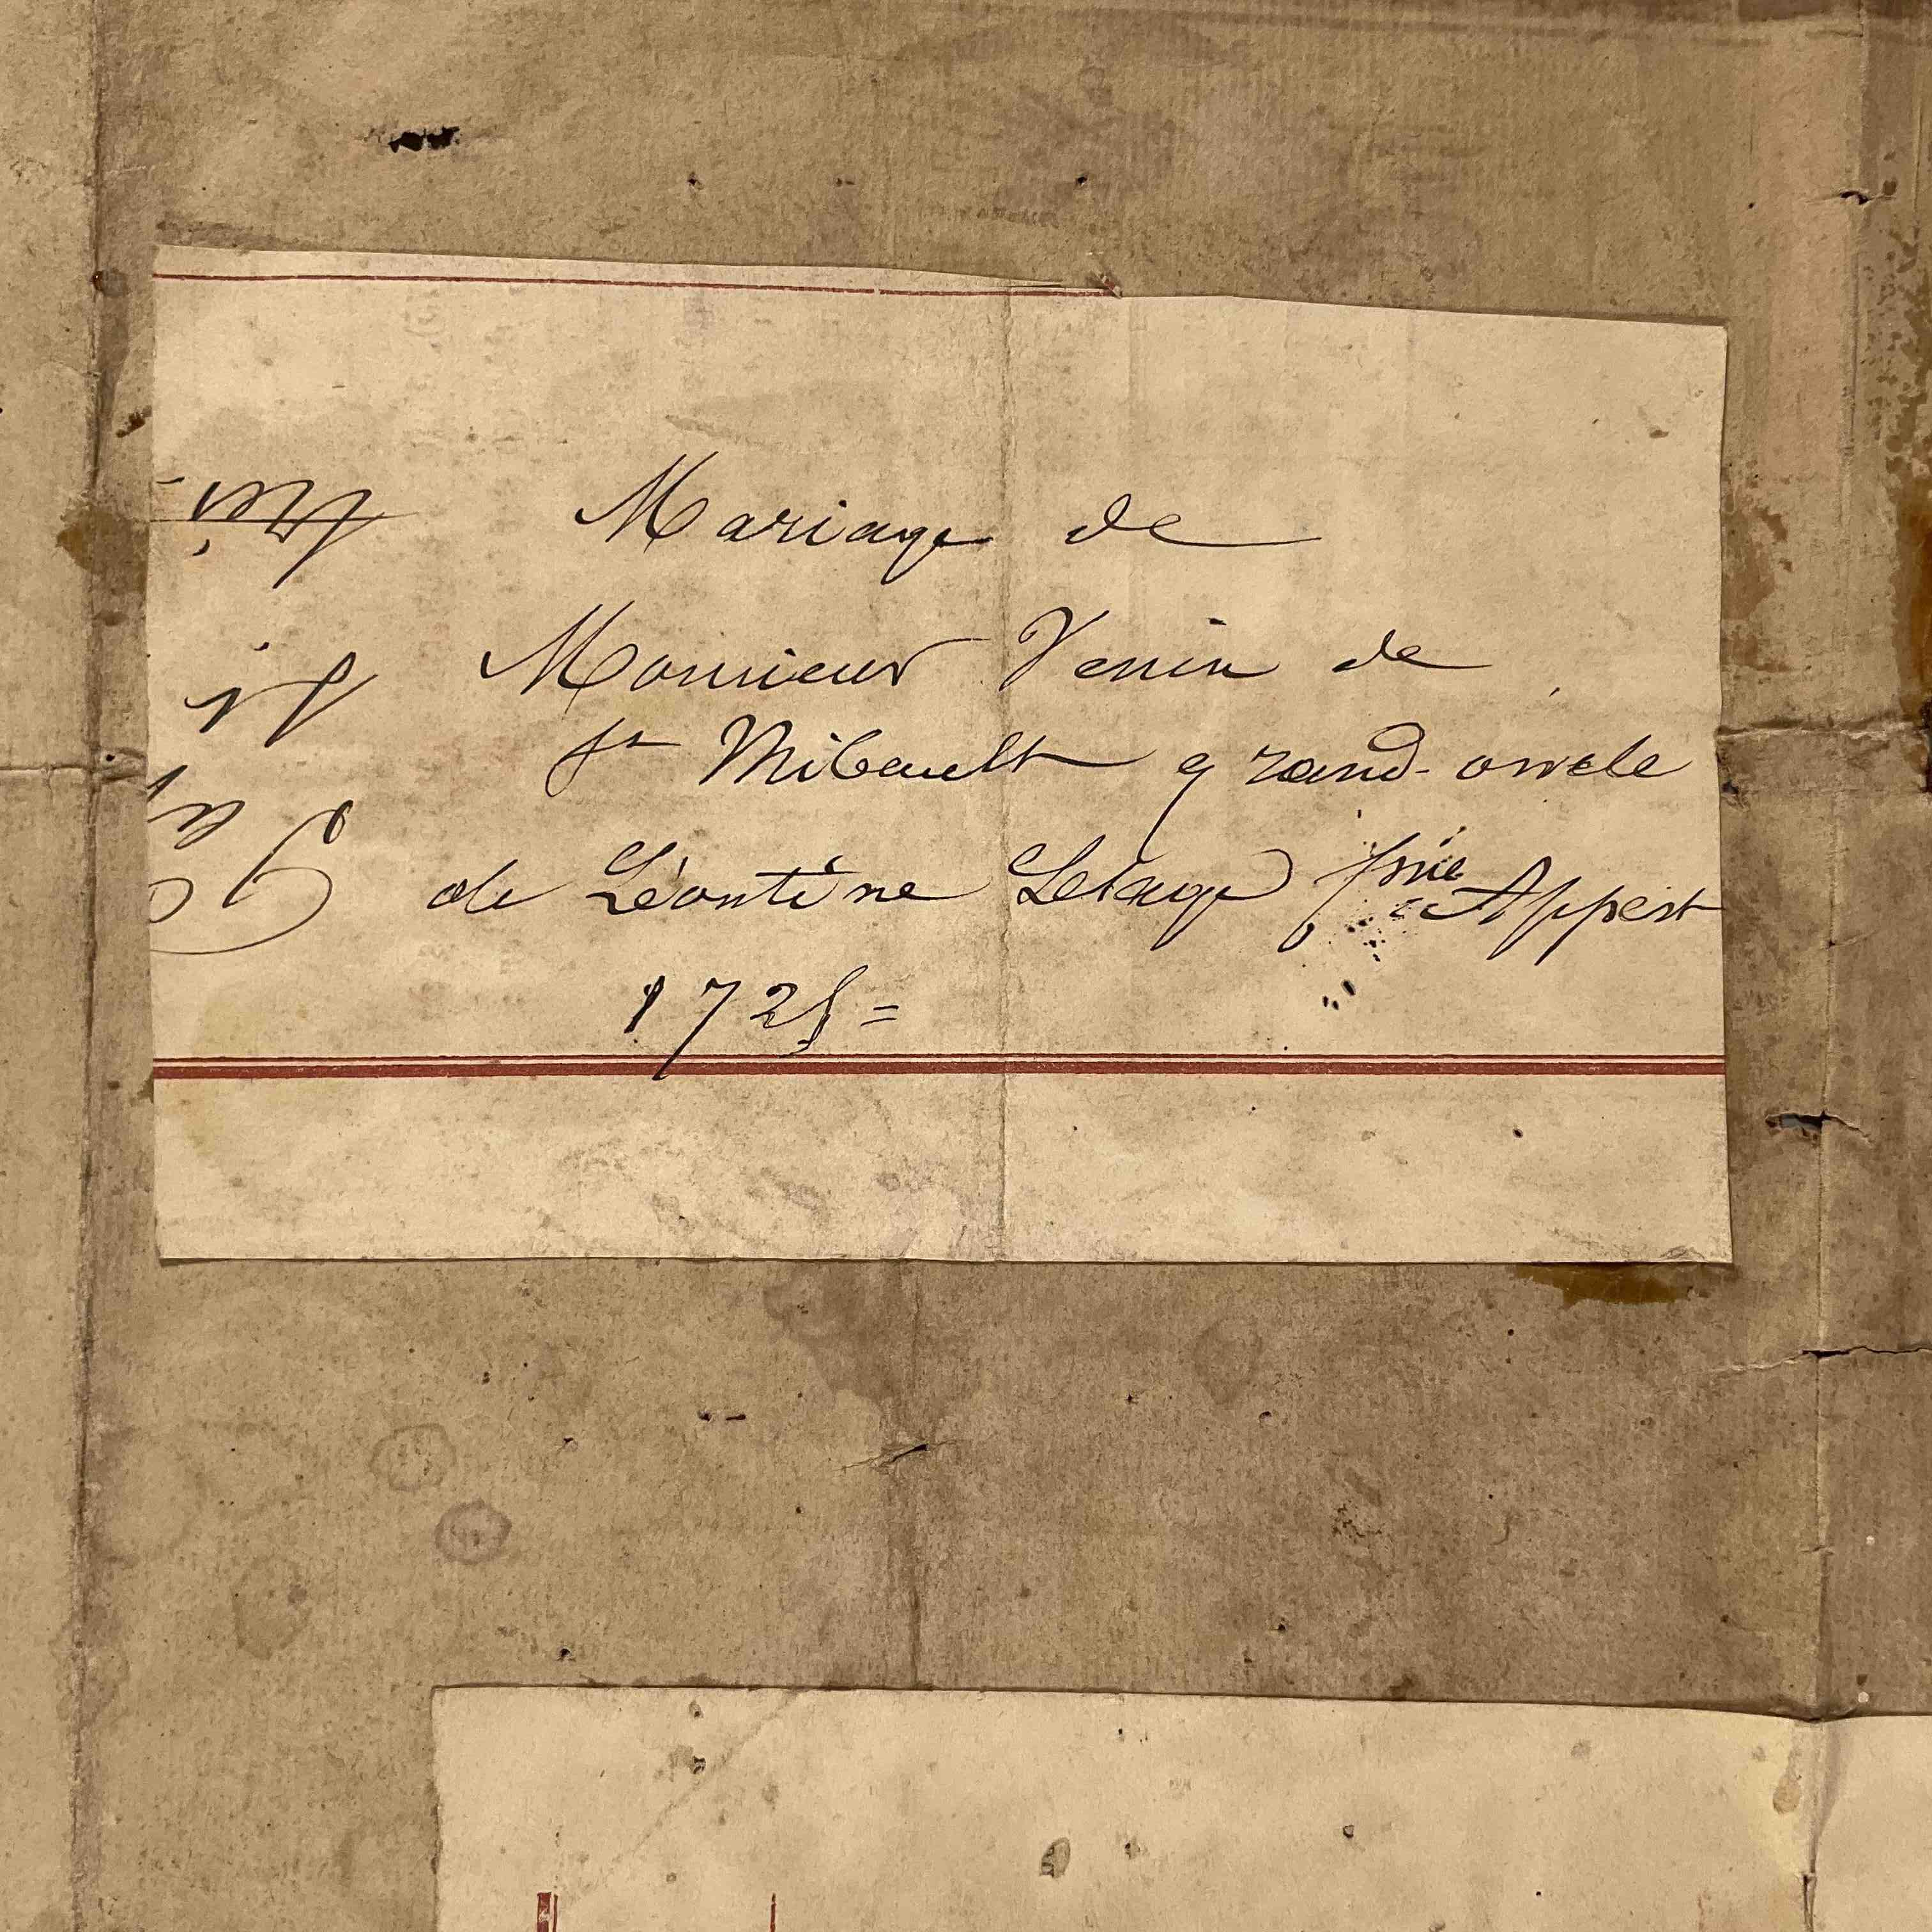 Mariage de
Monsieur Venin de
St Thibault grand-oncle
de Léontine Lesage Appert
1725=